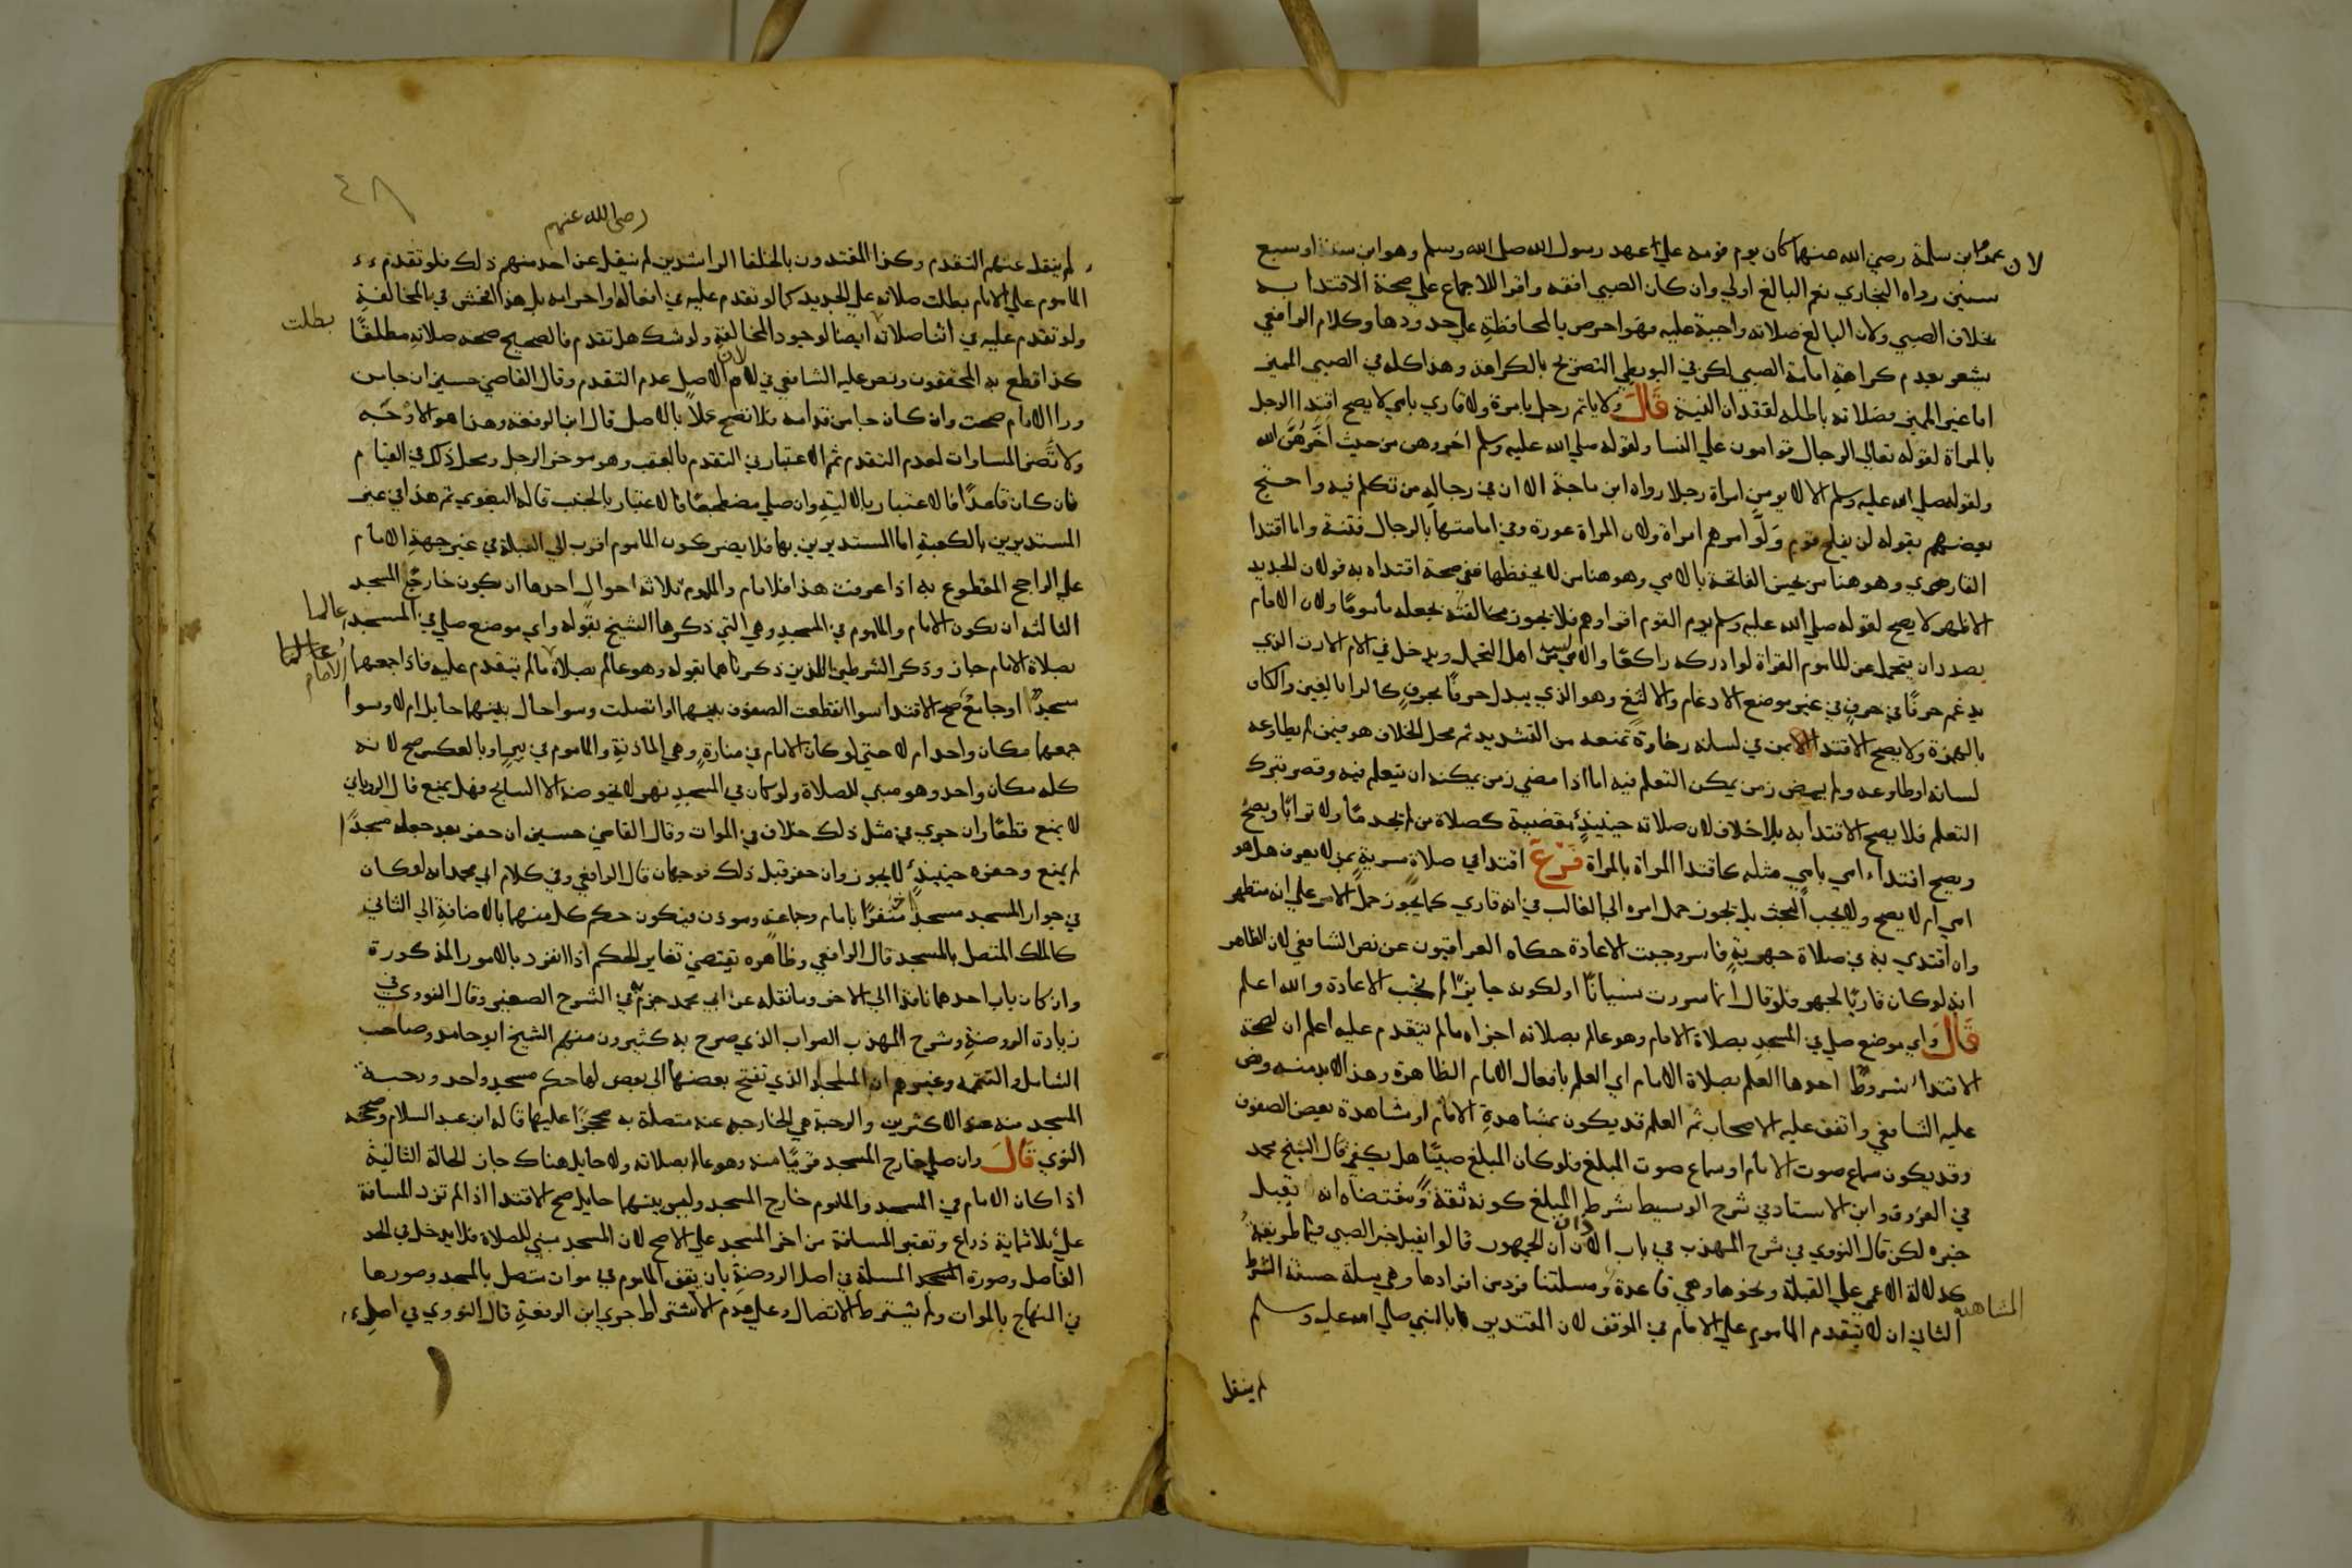 لان عمرو ابن سلمة رضي الله عنهما كان يوم قومه علي عهد رسول الله صلى الله وسلم وهو ابن ست او سبع
سنين رواه البخاري نعم البالغ اولي وان كان الصبي افقه واقرا للاجماع علي صحة الاقتدا به
بخلاف الصبي ولان البالغ صلاته واجبة عليه فهو احرص بالمحافظة علي حدودها وكلام الرافعي
يشعر بعدم كراهة امامة الصبي لكن في البويطي التصريح بالكراهة وهذا كله في الصبي المميز
اما غير المميز فصلاته باطله لفقدان النية قال ولا ياتم رجل بامرة ولا قاري بامي لا يصح اقتدا الرجل
بالمراة لقوله تعالي الرجال قوامون علي النسا ولقوله صلي الله عليه وسلم اخروهن من حيث اخرهن الله
ولقوله صلي الله عليه وسلم الا لا يومن امراة رجلا رواه ابن ماجة الا ان في رجاله من تكلم فيه واحتج
بعضهم بقوله لن يفلح قوم ولوا امرهم امراة ولان المراة عورة وفي امامتها بالرجال فتنة واما اقتدا
القاري وهو هنا من يحسن الفاتحة بالامي وهو هنا من لا يحفظها ففي صحة اقتداه به قولان الجديد
الاظهر لا يصح لقوله صلي الله عليه وسلم يوم القوم اقراوهم فلا يجوز مخالفته بجعله ماموما ولان الامام
بصدد ان يتحمل عن الماموم القراة لو ادركه راكعا والامي ليس من اهل التحمل ويدخل في الامي الارت الذي
يدغم حرفا في حرف في غير موضع الادغام والالثغ وهو الذي يبدل حرفا بحرف كالرا بالغين والكاف
بالهمزة ولا يصح الاقتدا بمن في لسانه رخاوة تمنعه من التشديد ثم محل الخلاف هو فيمن لم يطاوعه
لسانه او طاوعه ولم يمض زمن يمكن التعلم فيه اما اذا مضي زمن يمكنه ان يتعلم فيه وقصر بترك
التعلم فلا يصح الاقتدا به بلا خلاف لان صلاته حينيذ مقضية كصلاة من لم يجد ما ولا ترابا ويصح
ويصح اقتداء امي بامي مثله كاقتدا المراة بالمراة فرع اقتدا في صلاة سرية بمن لا يعرف هل هو
امي ام لا يصح ولا يجب البحث بل يجوز حمل امره الي الغالب في انه قاري كما يجوز حمل الامر علي انه متطهر
وان اقتدي به في صلاة جهرية فاسر وجبت الاعادة حكاه العراقيون عن نص الشافعي لان الظاهر
انه لو كان قاريا لجهر فلو قال انما سررت نسيانا او لكونه جايزا لم تجب الاعادة والله اعلم
قال واي موضع صلي في المسجد بصلاة الامام وهو عالم بصلاته اجزاه ما لم يتقدم عليه اعلم ان لصحة
الاقتداء شروطا احدها العلم بصلاة الامام اي العلم بافعال الامام الظاهرة وهذا لا بد منه ونص
عليه الشافعي واتفق عليه الاصحاب ثم العلم قد يكون بمشاهدة الامام او مشاهدة بعض الصفوف
وقد يكون سماع صوت الامام او سماع صوت المبلغ فلو كان المبلغ صبيا هل يكفي قال الشيخ محمد
في الفروق وابن الاستاد في شرح الوسيط شرط المبلغ كونه ثقة ومقتضاه انه يقبل
خبره لكن قال النووي في شرح المهذب في باب الاذان ان الجمهور قالوا يقبل خبر الصبي فيما طريقه
المشاهدة كدلالة الاعمي علي القبلة ونحوها وهي قاعدة ومسلتنا فرد من افرادها وهي مسلة حسنة الشرط
الثاني ان لا يتقدم الماموم علي الامام في الموقف لان المقتدين بالنبي صلي الله عليه وسلم
لم ينقل
٤٨
رضي الله عنهم
لم ينقل عنهم التقدم وكذا المقتدون بالخلفا الراشدين لم ينقل عن احد منهم ذلك فلو تقدم
الماموم علي الامام بطلت صلاته علي الجديد كما لو تقدم عليه في افعاله او احرامه بل هذا افحش في المخالفة
ولو تقدم عليه في اثنا صلاته بطلت ايضا لوجود المخالفة ولو شك هل تقدم فالصحيح صحة صلاته مطلقا
كذا قطع به المحققون ونص عليه الشافعي في الام لان الاصل عدم التقدم وقال القاضي حسين ان جا من
ورا الامام صحت وان كان جا من قدامه فلا تصح عملا بالاصل قال ابن الرفعة وهذا هو الاوجه
ولا تضر المساوات لعدم التقدم ثم الاعتبار في التقدم بالعقب وهو موخر الرجل ومحل ذلك في القيام
فان كان قاعدا فالاعتبار بالالية وان صلي مضطجعا فالاعتبار بالجنب قاله البغوي ثم هذا في غير
المستديرين بالكعبة اما المستديرين بها فلا يضر كون الماموم اقرب الي القبلة في غير جهة الامام
علي الراجح المقطوع به اذا عرفت هذا فللامام والماموم ثلاثة احوال احدها ان يكون خارج المسجد
الثالثه ان يكون الامام والماموم في المسجد وهي التي ذكرها الشيخ بقوله واي موضع صلي في المسجد
بصلاة الامام جاز وذكر الشرطين اللذين ذكرناهما بقوله وهو عالم بصلاة الامام ما لم يتقدم عليه فاذا جمعهما
مسجد او جامع صح الاقتدا سوا انقطعت الصفوف بينهما او اتصلت وسوا حال بينهما حايل ام لا وسوا
جمعهما مكان واحد ام لا حتي لو كان الامام في منارة وهي الماذنة والماموم في بير او بالعكس صح لانه
كله مكان واحد وهو مبني للصلاة ولو كان في المسجد نهر لا يخوضه الا السابح فهل يمنع قال الروياني
لا يمنع قطعا وان جري في مثل ذلك خلاف في الموات وقال القاضي حسين ان حفر بعد جعله مسجدا
لم يمنع وحفره حينيذ لا يجوز وان حفر قبل ذلك فوجهان قال الرافعي وفي كلام ابي محمد انه لو كان
في جوار المسجد مسجد اخر منفردا بامام وجماعة وموذن فيكون حكم كل منهما بالاضافة الي الثاني
كالملك المتصل بالمسجد قال الرافعي وظاهره يقتضي تغاير الحكم اذا انفرد بالامور المذكورة
وان كان باب احدهما نافذا الي الاخر وما نقله عن ابي محمد جزم به في الشرح الصغير وقال النووي في
زيادة الروضة وشرح المهذب الصواب الذي صرح به كثيرون منهم الشيخ ابو حامد وصاحب
الشامل والتتمه وغيرهم ان المساجد الذي تفتح بعضها الى بعض لها حكم مسجد واحد ورحبة
المسجد منه عند الاكثرين والرحبة هي الخارجه عنه متصلة به محجرا عليها قاله ابن عبد السلام وصححه
النووي قال وان صلي خارج المسجد قريبا منه وهو عالم بصلاته ولا حايل هناك جاز الحالة الثانية
اذا كان الامام في المسجد والماموم خارج المسجد وليس بينهما حايل صح الاقتدا اذا لم تزد المسافة
علي ثلاثماية ذراع وتعتبر المسافة من اخر المسجد علي الاصح لان المسجد مبني للصلاة فلا يدخل في الحد
الفاصل وصورة المسلة في اصل الروضة بان يقف الماموم في موات متصل بالمسجد وصورها
في المنهاج بالموات ولم يشترط الاتصال وعلي عدم الاشتراط جري ابن الرفعة قال النووي في اصل